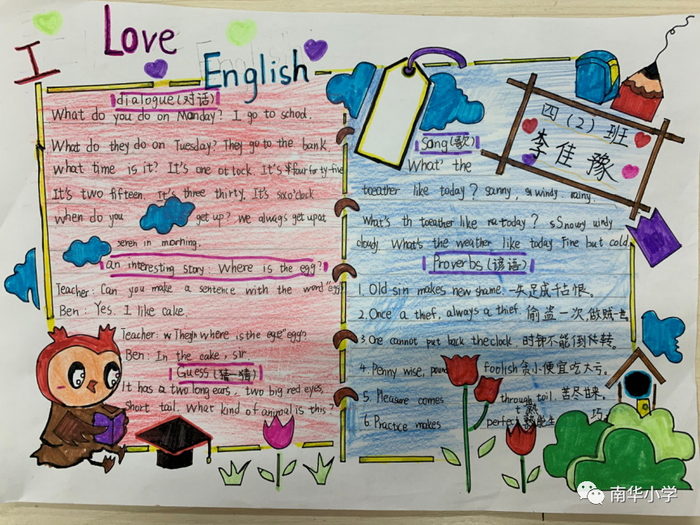 I Love
English
dialogue(对话)
What do you do on Monday? I go to school.
What do they do on Tuesday? They go to the bank.
What time is it? It's one o'clock. It's four forty-five
It's two fifteen. It's three thirty. It's six o'clock
when do you get up? We always get up at
seren in morning.
an interesting story: Where is the egg?
Teacher: Can you make a sentence with the word "egg"
Ben: Yes. I like cake.
Teacher: Where is the "egg"
Ben: In the cake, sir.
Guess(猜一猜)
It has a two long ears, two big red eyes,
short tail. What kind of animal is this?
四(2)班
李佳豫
Sang(歌)
What' the
toeather like today? sunny, windy. rainy.
What's th toeather like today? Snowy windy
cloudy. What's the weather like today Fine but cold
Proverbs(谚语)
1. Old sin makes new shame. 一失足成千古恨。
2. Once a thief, always a thief. 偷盗一次,做贼一世
3. One cannot put back the clock. 时钟不能倒转。
4. Penny wise, pound foolish 贪小便宜吃大亏。
5. Pleasure comes through toil. 苦尽甘来。
6. Practice makes perfect 熟能生巧
南华小学